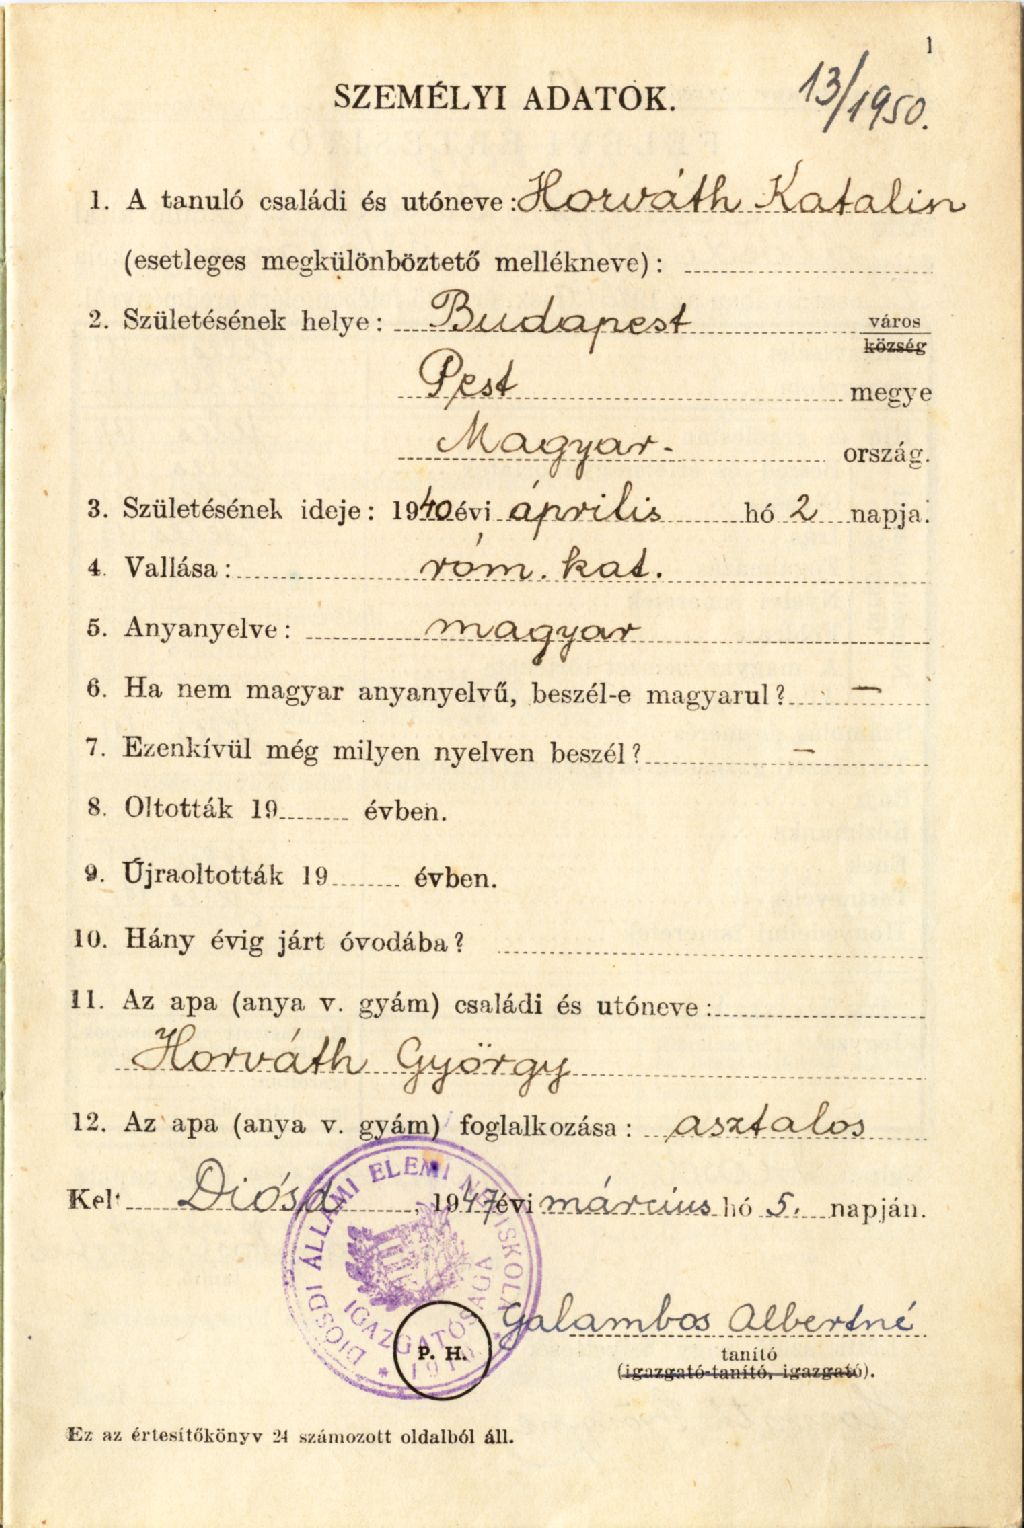 1
13/1950.
SZEMÉLYI ADATOK.
1. A tanuló családi és utóneve: Horváth Katalin
(esetleges megkülönböztető mellékneve):
2. Születésének helye: Budapest város
község
Pest megye
Magyar- ország.
3. Születésének ideje: 1940 évi április hó 2 napja.
4. Vallása: róm. kat.
5. Anyanyelve: magyar
6. Ha nem magyar anyanyelvű, beszél-e magyarul? —
7. Ezenkívül még milyen nyelven beszél? —
8. Oltották 19 évben.
9. Újraoltották 19 évben.
10. Hány évig járt óvodába?
11. Az apa (anya v. gyám) családi és utóneve:
Horváth György
12. Az apa (anya v. gyám) foglalkozása: asztalos
Kelt Diósd, 1947 évi március hó 5. napján.
DIÓSDI ÁLLAMI ELEMI NÉPISKOLA
IGAZGATÓSÁGA
P. H.
Galambos Albertné
tanító
(igazgató-tanító, igazgató).
Ez az értesítőkönyv 24 számozott oldalból áll.